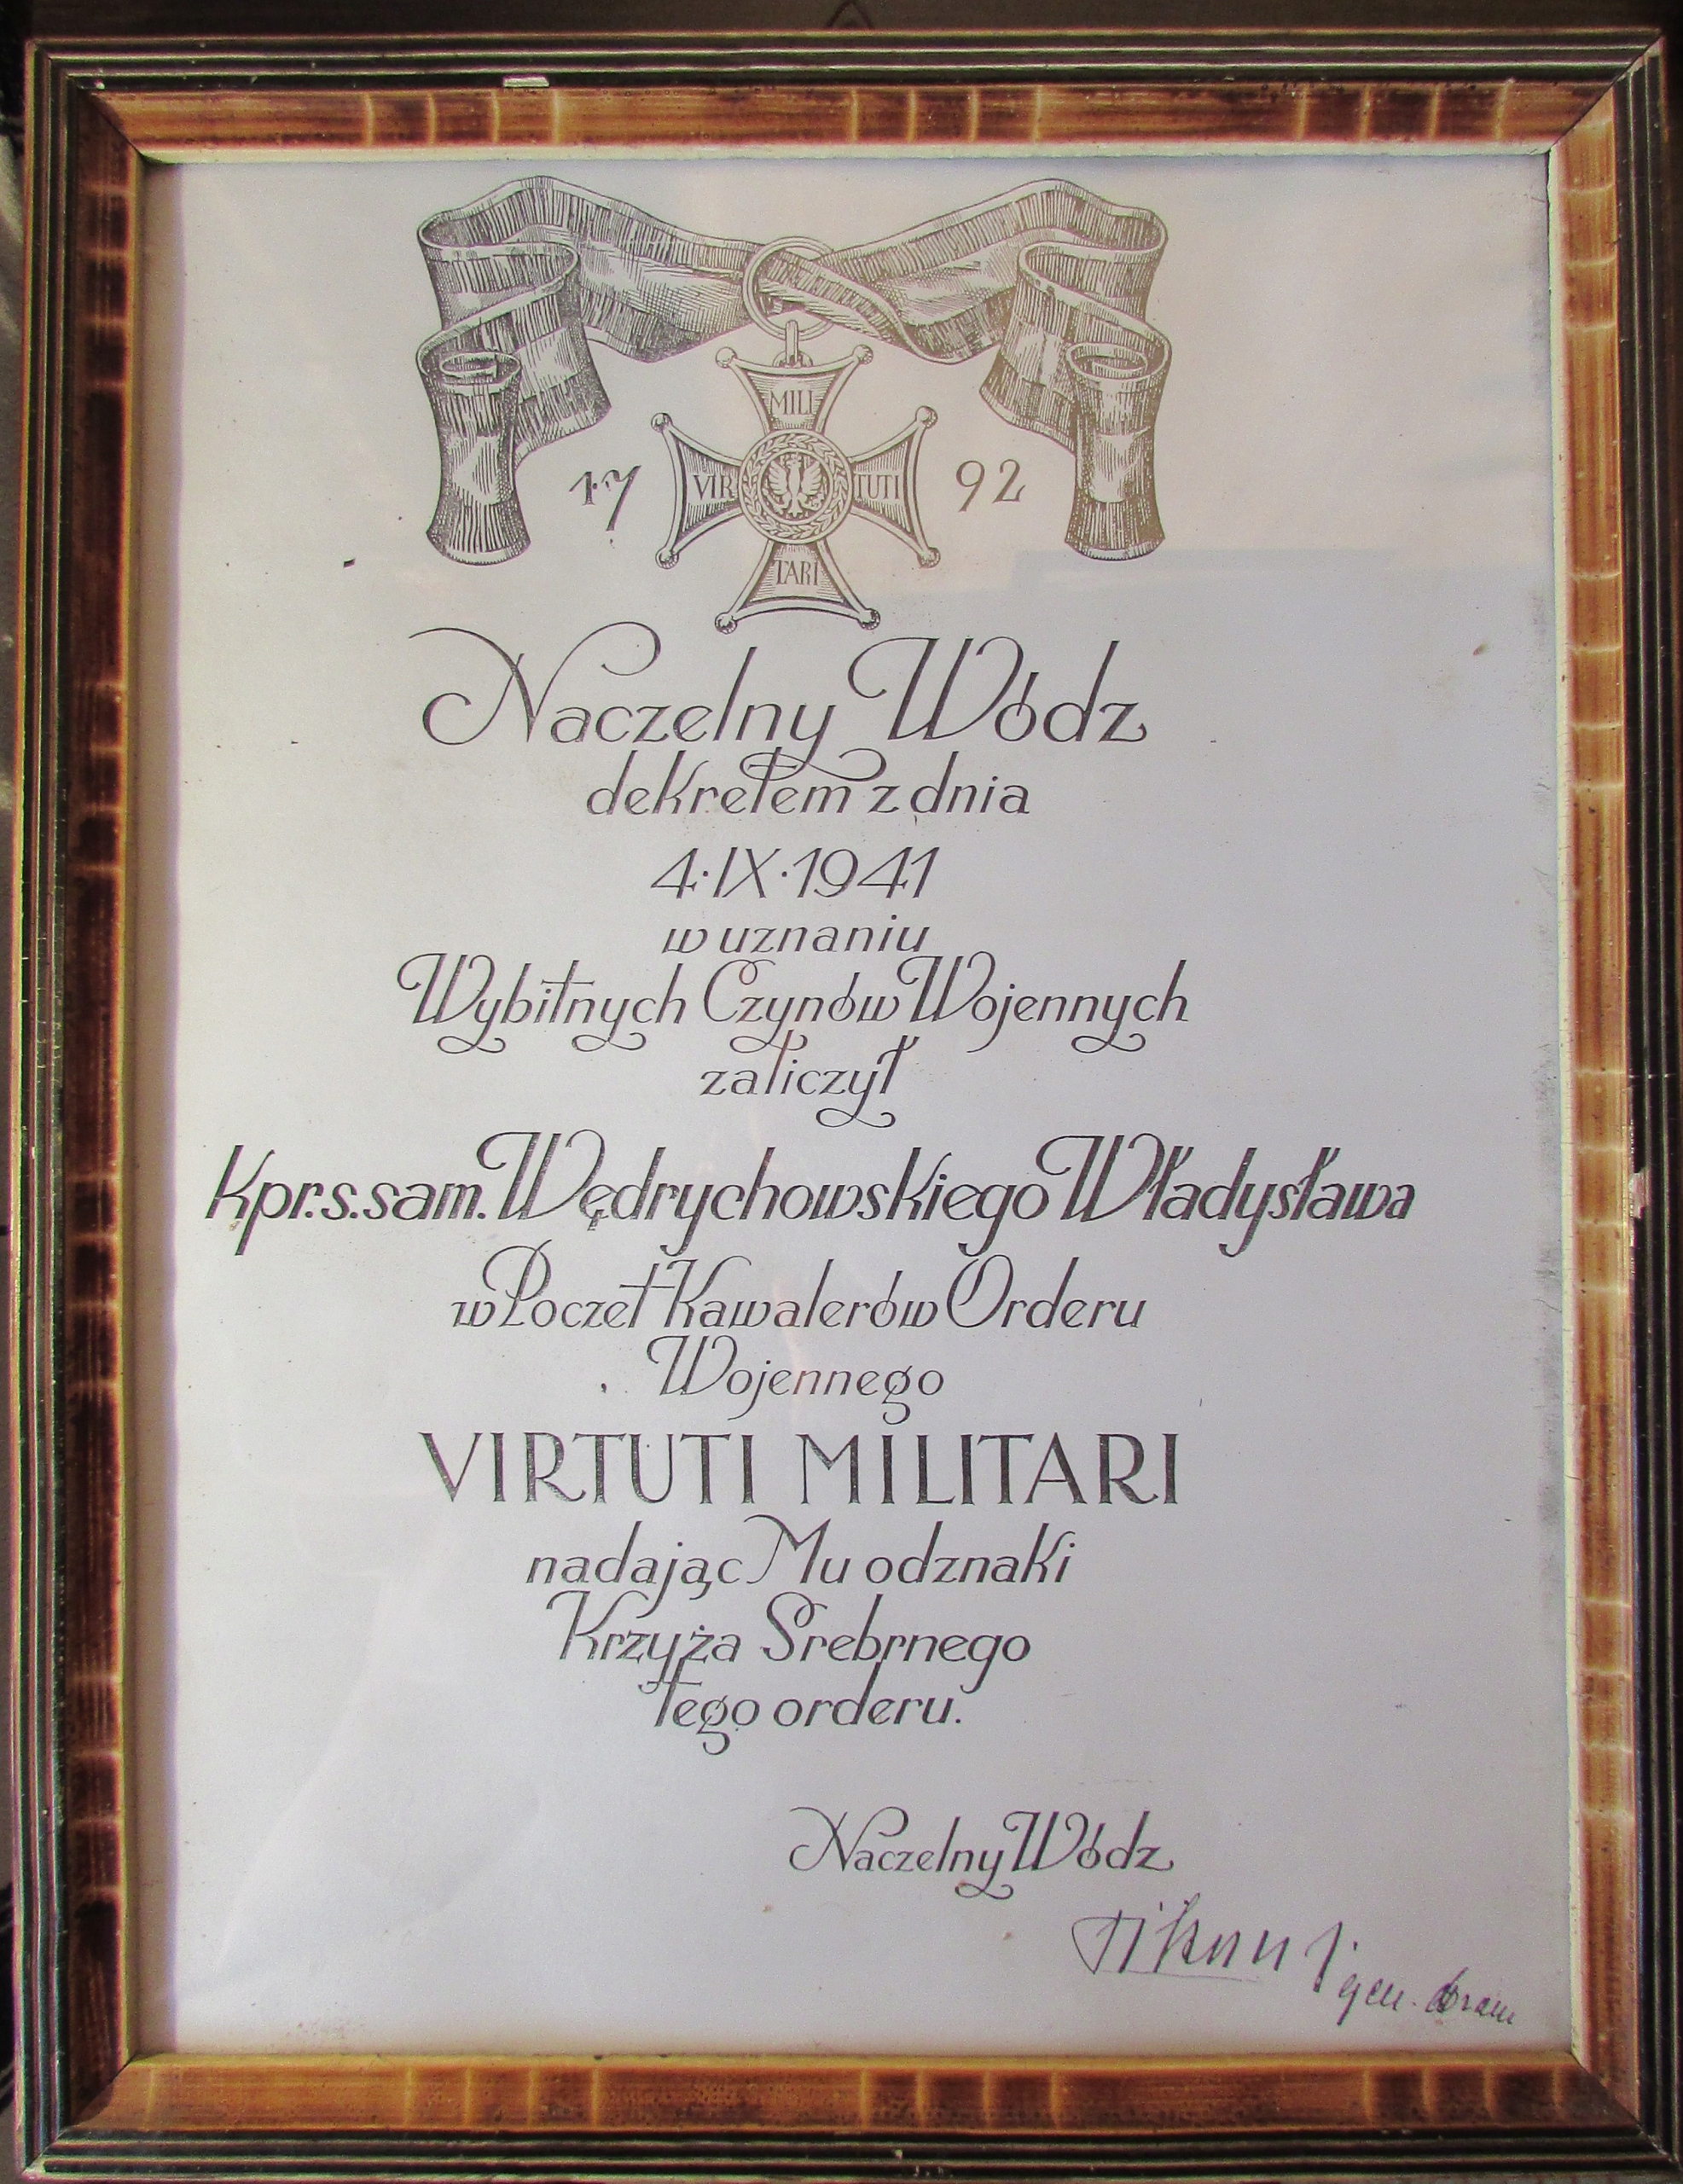 MILI
17 VIR TUTI 92
TARI
Naczelny Wódz
dekretem z dnia
4·IX·1941
w uznaniu
Wybitnych Czynów Wojennych
zaliczył
Kpr.s.sam. Wędrychowskiego Władysława
w Poczet Kawalerów Orderu
Wojennego
VIRTUTI MILITARI
nadając Mu odznaki
Krzyża Srebrnego
tego orderu.
Naczelny Wódz
gen. broni